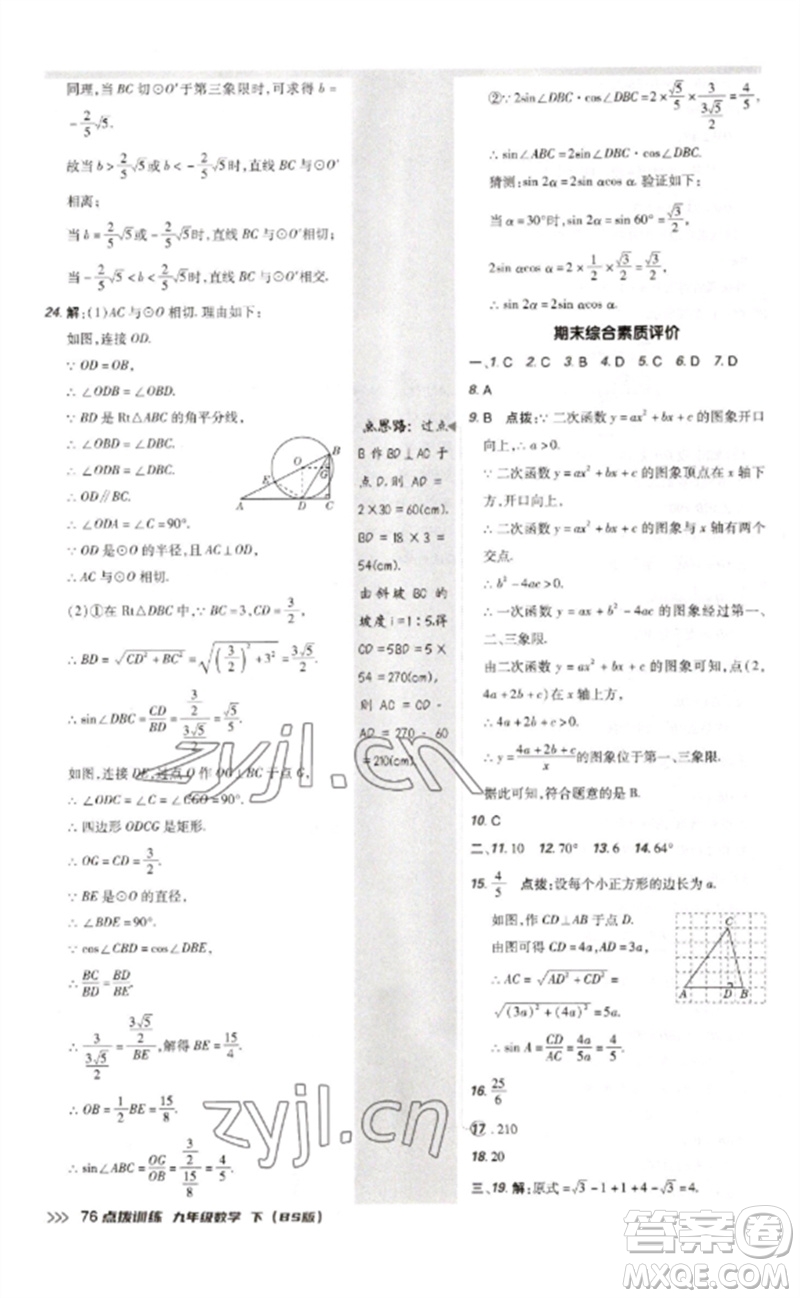 同理,当 BC 切⊙O′于第三象限时,可求得 b=
-2/5√5.
故当 b>2/5√5或 b<-2/5√5时,直线 BC 与⊙O′
相离;
当 b=2/5√5或-2/5√5时,直线 BC 与⊙O′相切;
当-2/5√5<b<2/5√5时,直线 BC 与⊙O′相交.
24.解:(1)AC 与⊙O 相切.理由如下:
如图,连接 OD.
∵OD=OB,
∴∠ODB=∠OBD.
∵BD 是 Rt△ABC 的角平分线,
∴∠OBD=∠CBD.
∴∠ODB=∠CBD.
∴OD∥BC.
∴∠ODA=∠C=90°.
∵OD 是⊙O 的半径,且 AC⊥OD,
∴AC 与⊙O 相切.
O
B
G
E
A
D
C
(2)①在 Rt△DBC 中,∵BC=3,CD=3/2,
∴BD=√(CD²+BC²)=√((3/2)²+3²)=3√5/2.
∴sin∠DBC=CD/BD=(3/2)/(3√5/2)=√5/5.
如图,连接 DE,过点 O 作 OG⊥BC 于点 G,
∴∠ODC=∠C=∠CGO=90°.
∴四边形 ODCG 是矩形.
∴OG=CD=3/2.
∵BE 是⊙O 的直径,
∴∠BDE=90°.
∵cos∠CBD=cos∠DBE,
∴BC/BD=BD/BE.
∴3/(3√5/2)=(3√5/2)/BE,解得 BE=15/4.
∴OB=1/2BE=15/8.
∴sin∠ABC=OG/OB=(3/2)/(15/8)=4/5.
>>> 76 点拨训练 九年级数学 下(BS版)
点思路:过点
B 作 BD⊥AC 于
点 D.则 AD=
2×30=60(cm).
BD=18×3=
54(cm).
由斜坡 BC 的
坡度 i=1:5.得
CD=5BD=5×
54=270(cm).
则 AC=CD-
AD=270-60
=210(cm)
②∵2sin∠DBC·cos∠DBC=2×√5/5×3/(3√5/2)=4/5,
∴sin∠ABC=2sin∠DBC·cos∠DBC.
猜测:sin 2α=2sin αcos α.验证如下:
当 α=30°时,sin 2α=sin 60°=√3/2,
2sin αcos α=2×1/2×√3/2=√3/2,
∴sin 2α=2sin αcos α.
期末综合素质评价
一、1.C 2.C 3.B 4.D 5.C 6.D 7.D
8.A
9.B 点拨:∵二次函数 y=ax²+bx+c 的图象开口
向上,∴a>0.
∵二次函数 y=ax²+bx+c 的图象顶点在 x 轴下
方,开口向上,
∴二次函数 y=ax²+bx+c 的图象与 x 轴有两个
交点.
∴b²-4ac>0.
∴一次函数 y=ax+b²-4ac 的图象经过第一、
二、三象限.
由二次函数 y=ax²+bx+c 的图象可知,点(2,
4a+2b+c)在 x 轴上方,
∴4a+2b+c>0.
∴y=(4a+2b+c)/x的图象位于第一、三象限.
据此可知,符合题意的是 B.
10.C
二、11.10 12.70° 13.6 14.64°
15.4/5 点拨:设每个小正方形的边长为 a.
如图,作 CD⊥AB 于点 D.
由图可得 CD=4a,AD=3a,
∴AC=√(AD²+CD²)=
√((3a)²+(4a)²)=5a.
∴sin A=CD/AC=4a/5a=4/5.
C
A
D
B
16.25/6
17.210
18.20
三、19.解:原式=√3-1+1-√3+4=4.
zyjl.cn
zyjl.cn
答案圈
MXQE.COM